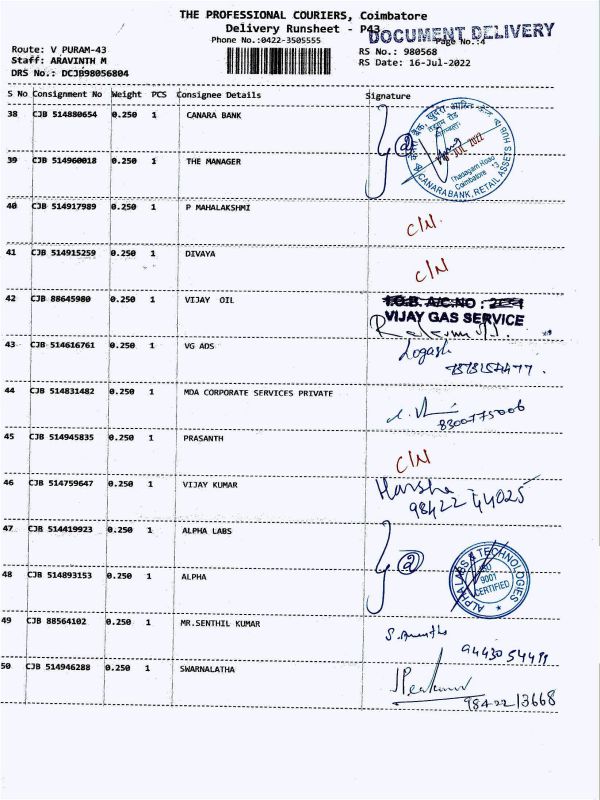 THE PROFESSIONAL COURIERS, Coimbatore
Delivery Runsheet - P43
DOCUMENT DELIVERY
Phone No.:0422-3505555
Page No.:4
Route: V PURAM-43
Staff: ARAVINTH M
DRS No.: DCJB98056804
RS No.: 980568
RS Date: 16-Jul-2022
S No Consignment No Weight PCS Consignee Details Signature
38 CJB 514880654 0.250 1 CANARA BANK
JUL 2022
Coimbatore
CANARA BANK, RETAIL ASSETS HUB
39 CJB 514960018 0.250 1 THE MANAGER
40 CJB 514917989 0.250 1 P MAHALAKSHMI C/N.
41 CJB 514915259 0.250 1 DIVAYA C/N
42 CJB 88645980 0.250 1 VIJAY OIL
I.O.B. A/C.NO :
VIJAY GAS SERVICE
43 CJB 514616761 0.250 1 VG ADS Logash
44 CJB 514831482 0.250 1 MDA CORPORATE SERVICES PRIVATE
8300775006
45 CJB 514945835 0.250 1 PRASANTH C/N
46 CJB 514759647 0.250 1 VIJAY KUMAR Harsha
98422 44025
47 CJB 514419923 0.250 1 ALPHA LABS
ALPHA LABS & TECHNOLOGIES
ISO
9001
CERTIFIED
48 CJB 514893153 0.250 1 ALPHA
49 CJB 88564102 0.250 1 MR.SENTHIL KUMAR
50 CJB 514946288 0.250 1 SWARNALATHA
98422 13668